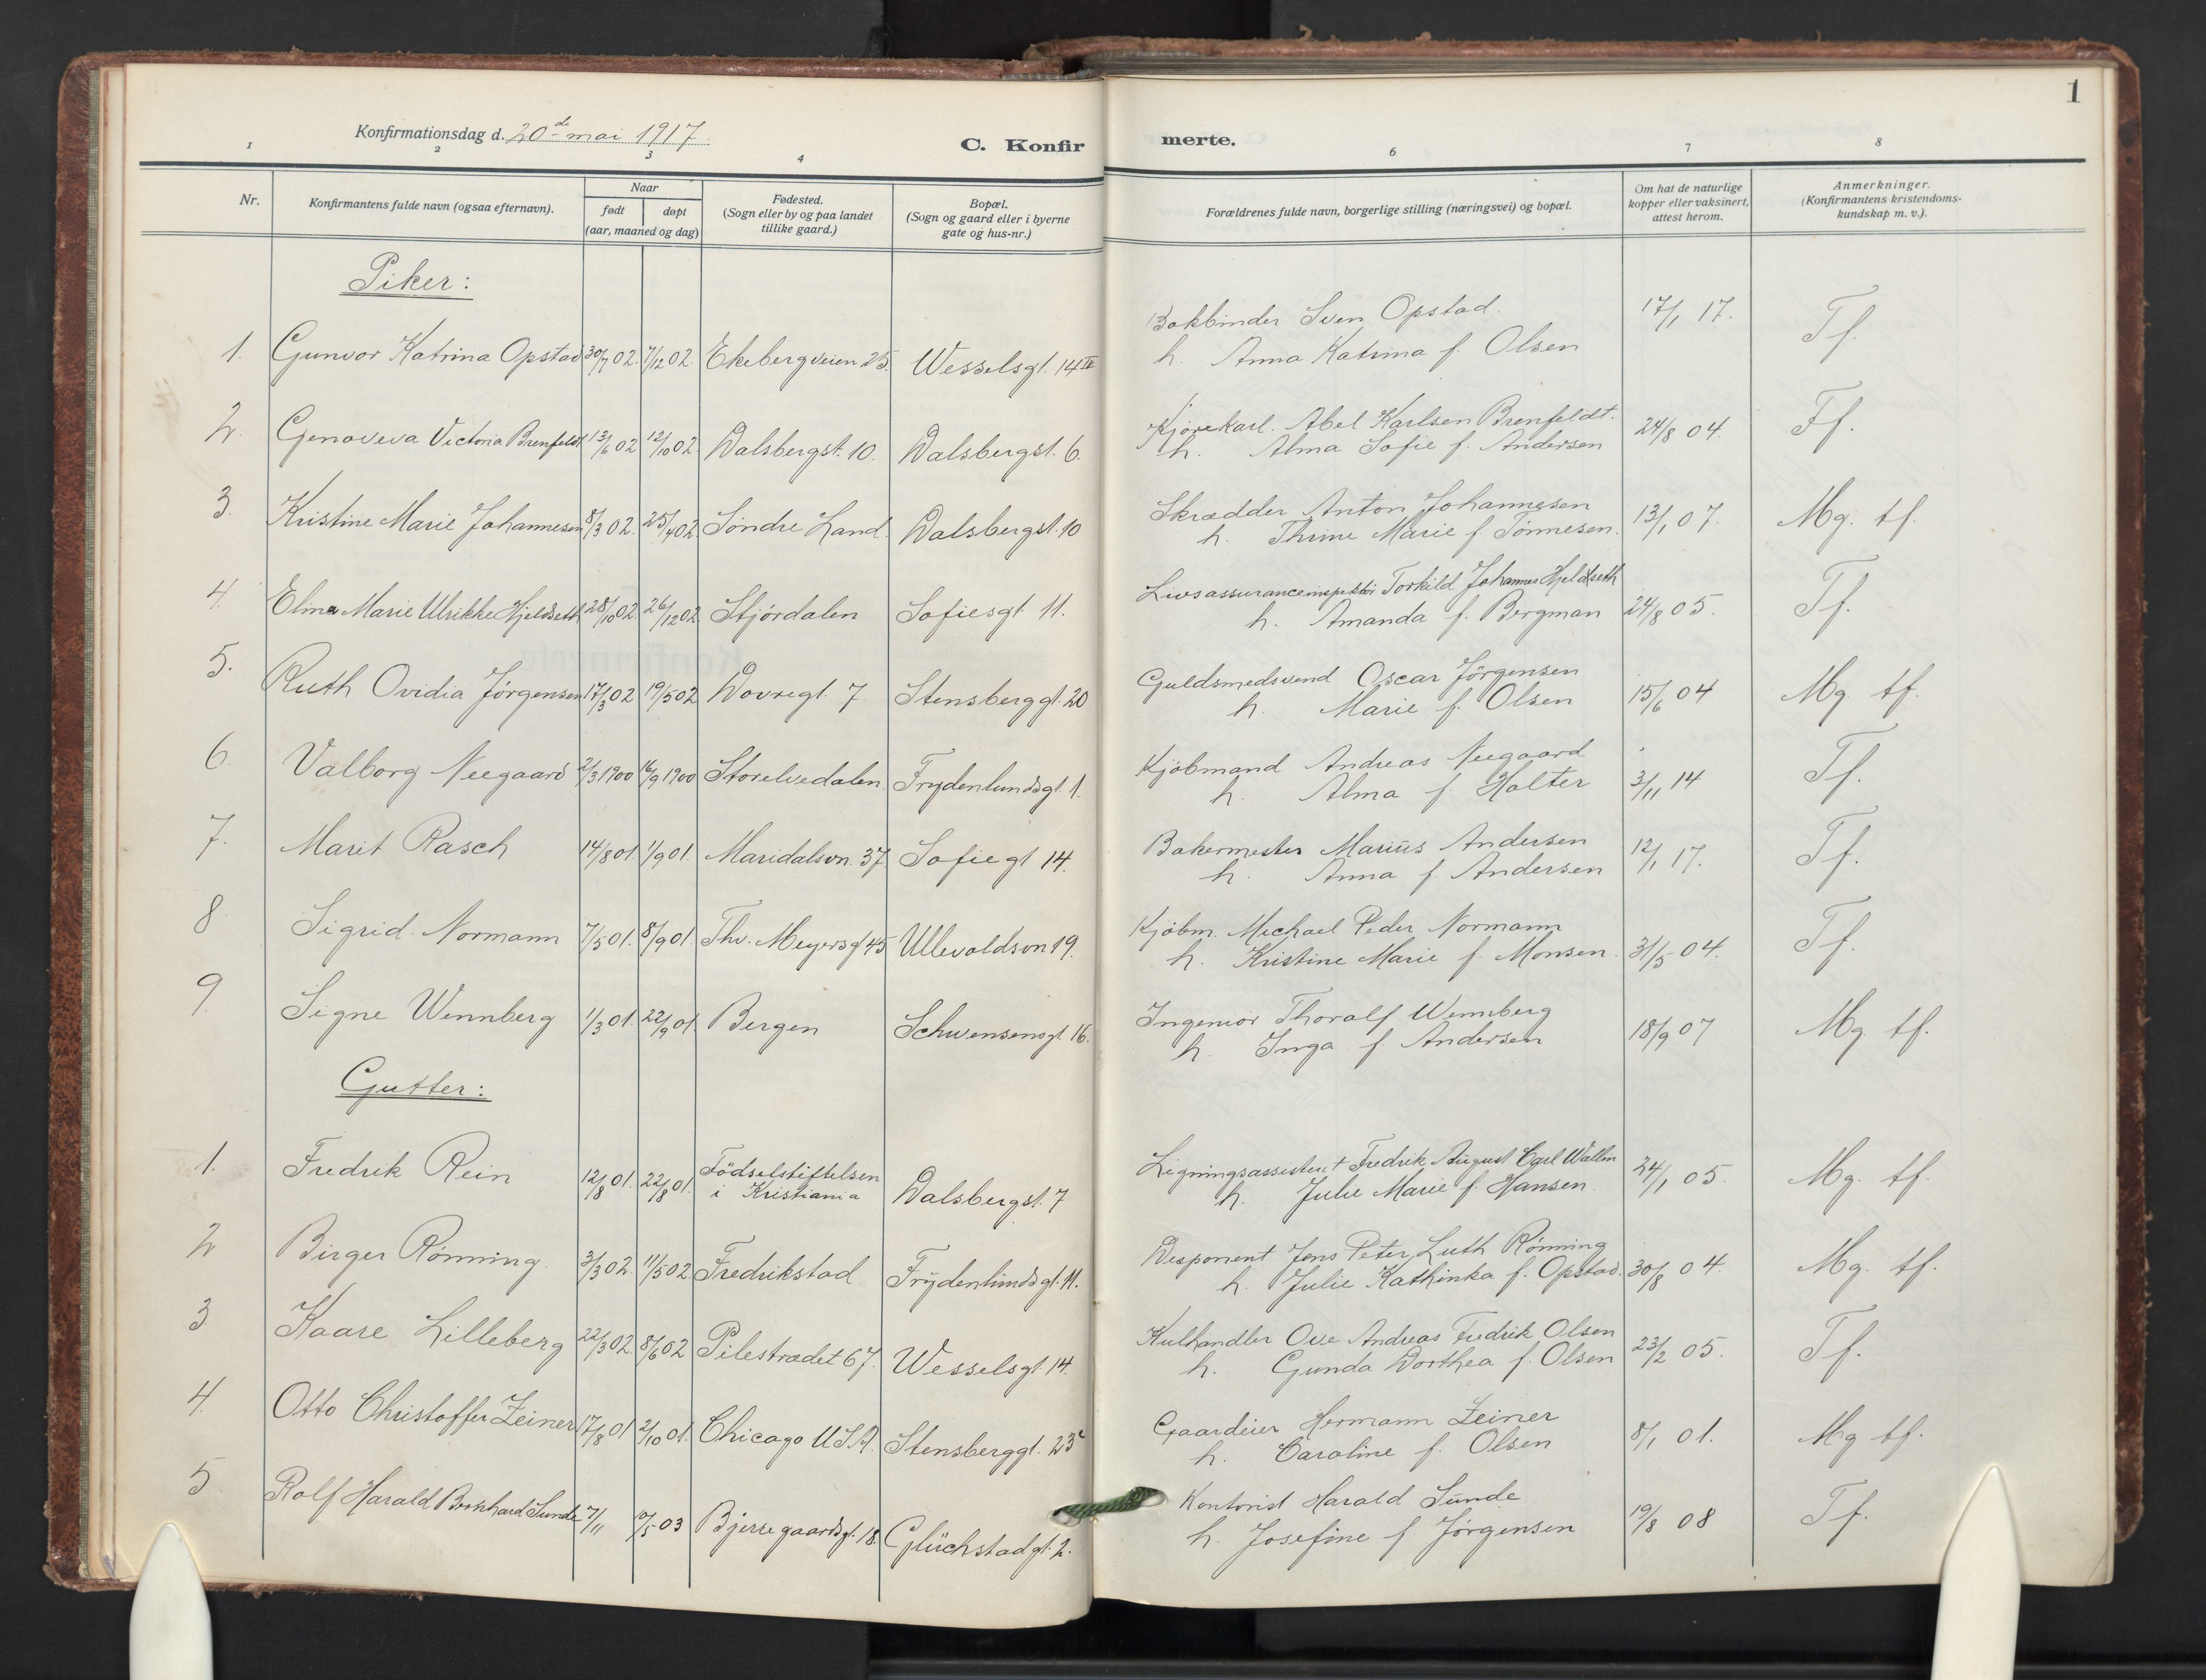 1
Konfirmationsdag d. 20de mai 1917.
C. Konfirmerte.
1 2 3 4 6 7 8
Nr.
Konfirmantens fulde navn (ogsaa efternavn).
Naar
født
døpt
(aar, maaned og dag)
Fødested.
(Sogn eller by og paa landet
tillike gaard.)
Bopæl.
(Sogn og gaard eller i byerne
gate og hus-nr.)
Forældrenes fulde navn, borgerlige stilling (næringsvei) og bopæl.
Om hat de naturlige
kopper eller vaksinert,
attest herom.
Anmerkninger.
(Konfirmantens kristendoms-
kundskap m. v.).
Piker:
1. Gunvor Katrina Opstad 30/7 02. 7/12 02. Ekebergveien 25. Wesselsgt. 14 IV
Bokbinder Sven Opstad.
h. Anna Katrina f. Olsen 17/1 17. Tf.
2. Genoveva Victoria Brenfeldt 13/6 02 12/10 02. Dalsbergst. 10. Dalsbergst. 6.
Kjørekarl. Abel Karlsen Brenfeldt.
h. Alma Sofie f. Andersen 24/8 04. Tf.
3. Kristine Marie Johannesen 8/3 02. 25/4 02. Søndre Land. Dalsbergst. 10
Skrædder Anton Johannesen
h. Thrine Marie f. Tønnesen. 13/1 07. Mg. tf.
4. Elma Marie Ulrikke Hjeldseth 28/10 02. 26/12 02. Stjørdalen Sofiesgt. 11.
Livsassuranceinspektør Torkild Johannes Hjeldseth
h. Amanda f. Bergman 24/8 05. Tf.
5. Ruth Ovidia Jørgensen 17/3 02 19/5 02 Dovregt. 7 Stensberggt. 20
Guldsmedsvend Oscar Jørgensen
h. Marie f. Olsen 15/6 04 Mg tf.
6. Valborg Neegaard 2/3 1900 16/9 1900 Storelvedalen. Frydenlundsgt. 1.
Kjøbmand Andreas Neegaard
h. Alma f. Holter 3/11 14 Tf.
7. Marit Rasch 14/8 01. 1/9 01. Maridalsvn. 37. Sofiegt 14.
Bakermester Marius Andersen
h. Anna f. Andersen 12/1 17. Tf.
8. Sigrid Normann 7/5 01. 8/9 01. Thv. Meyersgt 45 Ullevoldsvn 19.
Kjøbm. Michael Peder Normann
h. Kristine Marie f. Monsen. 31/5 04. Tf.
9. Signe Wennberg 1/3 01. 22/9 01. Bergen Schwensensgt. 16.
Ingeniør Thoralf Wennberg
h. Inga f. Andersen 18/9 07 Mg tf.
Gutter:
1. Fredrik Rein 12/8 01. 22/8 01. Fødselstiftelsen
i Kristiania Dalsbergst. 7
Ligningsassistent Fredrik August Carl Wallin
h. Julie Marie f. Hansen 24/1 05. Mg. tf.
2 Birger Rønning. 3/3 02. 11/5 02. Fredrikstad. Frydenlundsgt. 11.
Disponent Jens Peter Luth Rønning
h. Julie Kathinka f. Opstad. 30/8 04. Mg. tf.
3 Kaare Lilleberg 22/3 02. 8/6 02 Pilestrædet 67. Wesselsgt 14.
Kulhandler Ove Andreas Fredrik Olsen
h. Gunda Dorthea f. Olsen 23/2 05. Tf.
4. Otto Christoffer Zeiner 17/8 01 2/10 01. Chicago U.S.A. Stensberggt. 25
Gaardeier Hermann Zeiner
h. Caroline f. Olsen 8/1 01. Mg tf.
5 Rolf Harald Sunde 7/11 5 03 Bjerregaardsgt. 18. Glückstadgt. 2.
Kontorist Harald Sunde
h. Josefine f. Jørgensen 19/8 08 Tf.